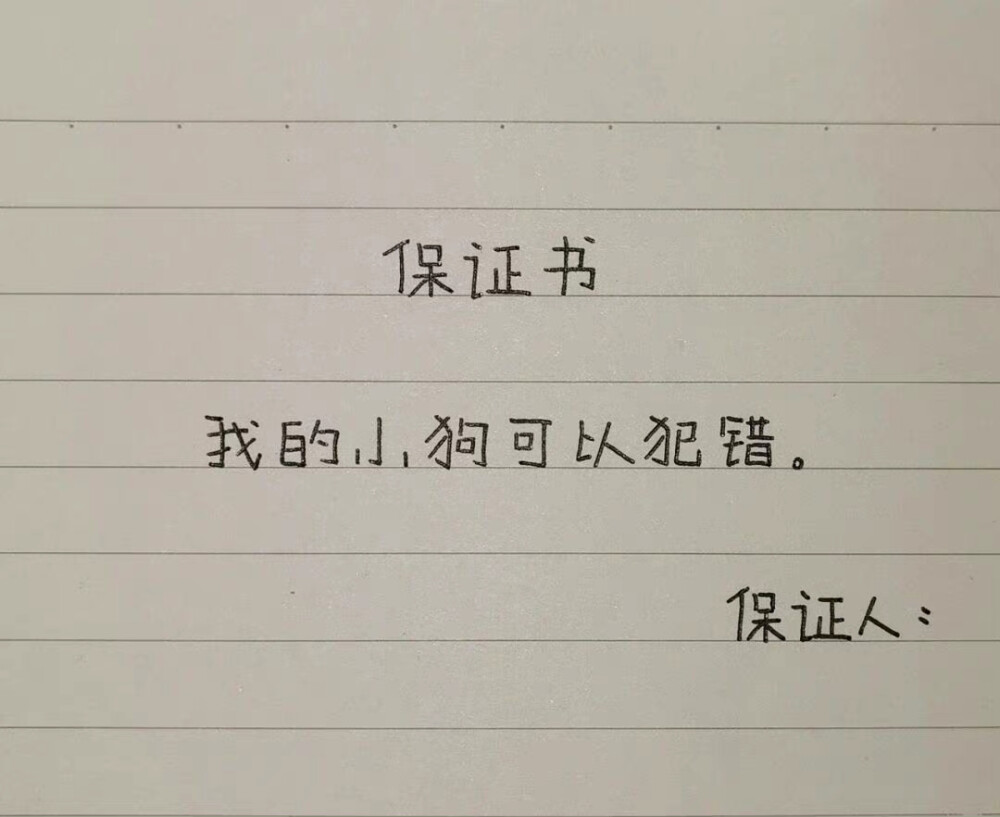 保证书
我的小狗可以犯错。
保证人：